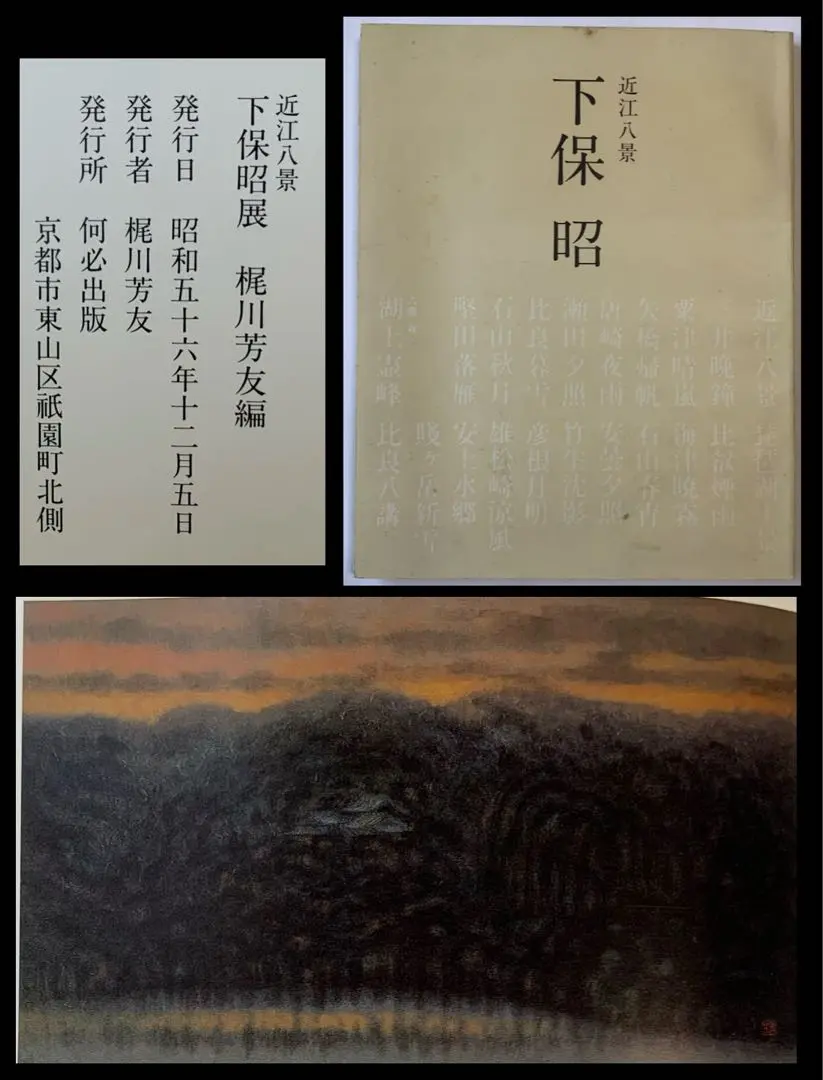 近江八景
下保昭展 梶川芳友編
発行日 昭和五十六年十二月五日
発行者 梶川芳友
発行所 何必出版
京都市東山区祇園町北側
近江八景
下保 昭
近江八景 琵琶湖十景
三井晩鐘 比叡煙雨
粟津晴嵐 海津暁霧
矢橋帰帆 石山春宵
唐崎夜雨 安曇夕照
瀬田夕照 竹生沈影
比良暮雪 彦根月明
石山秋月 雄松崎涼風
堅田落雁 安土水郷
賤ヶ岳新雪
湖上壷峰 比良八講